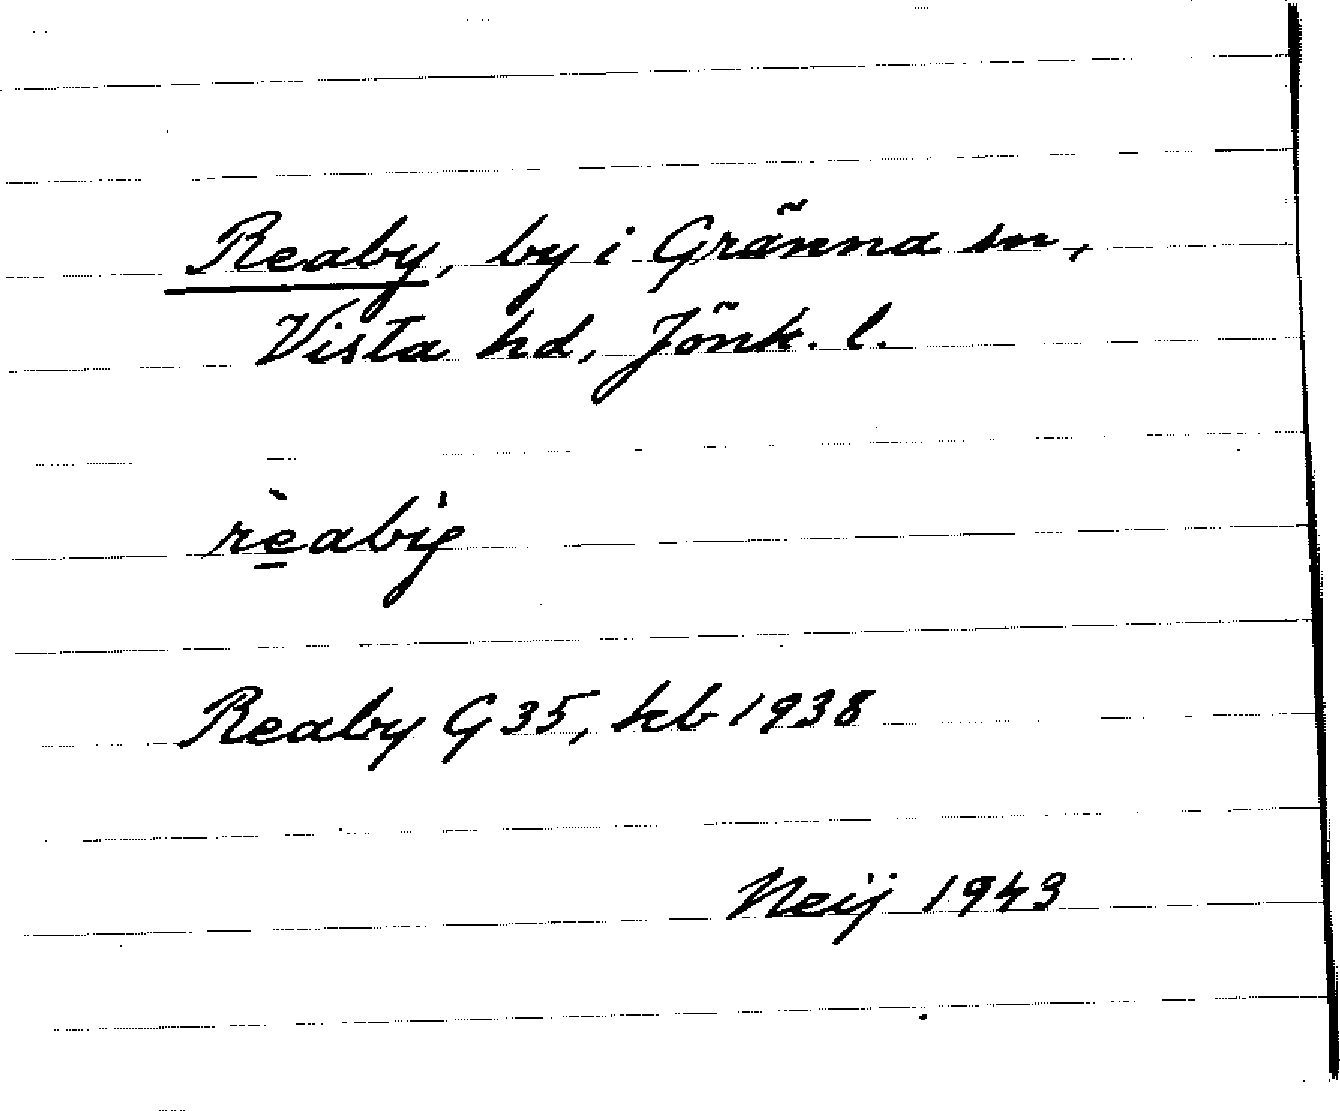 Reaby, by i Gränna sn,
Vista hd, Jönk. l.
Reaby G 35, kb 1938
Neij 1943